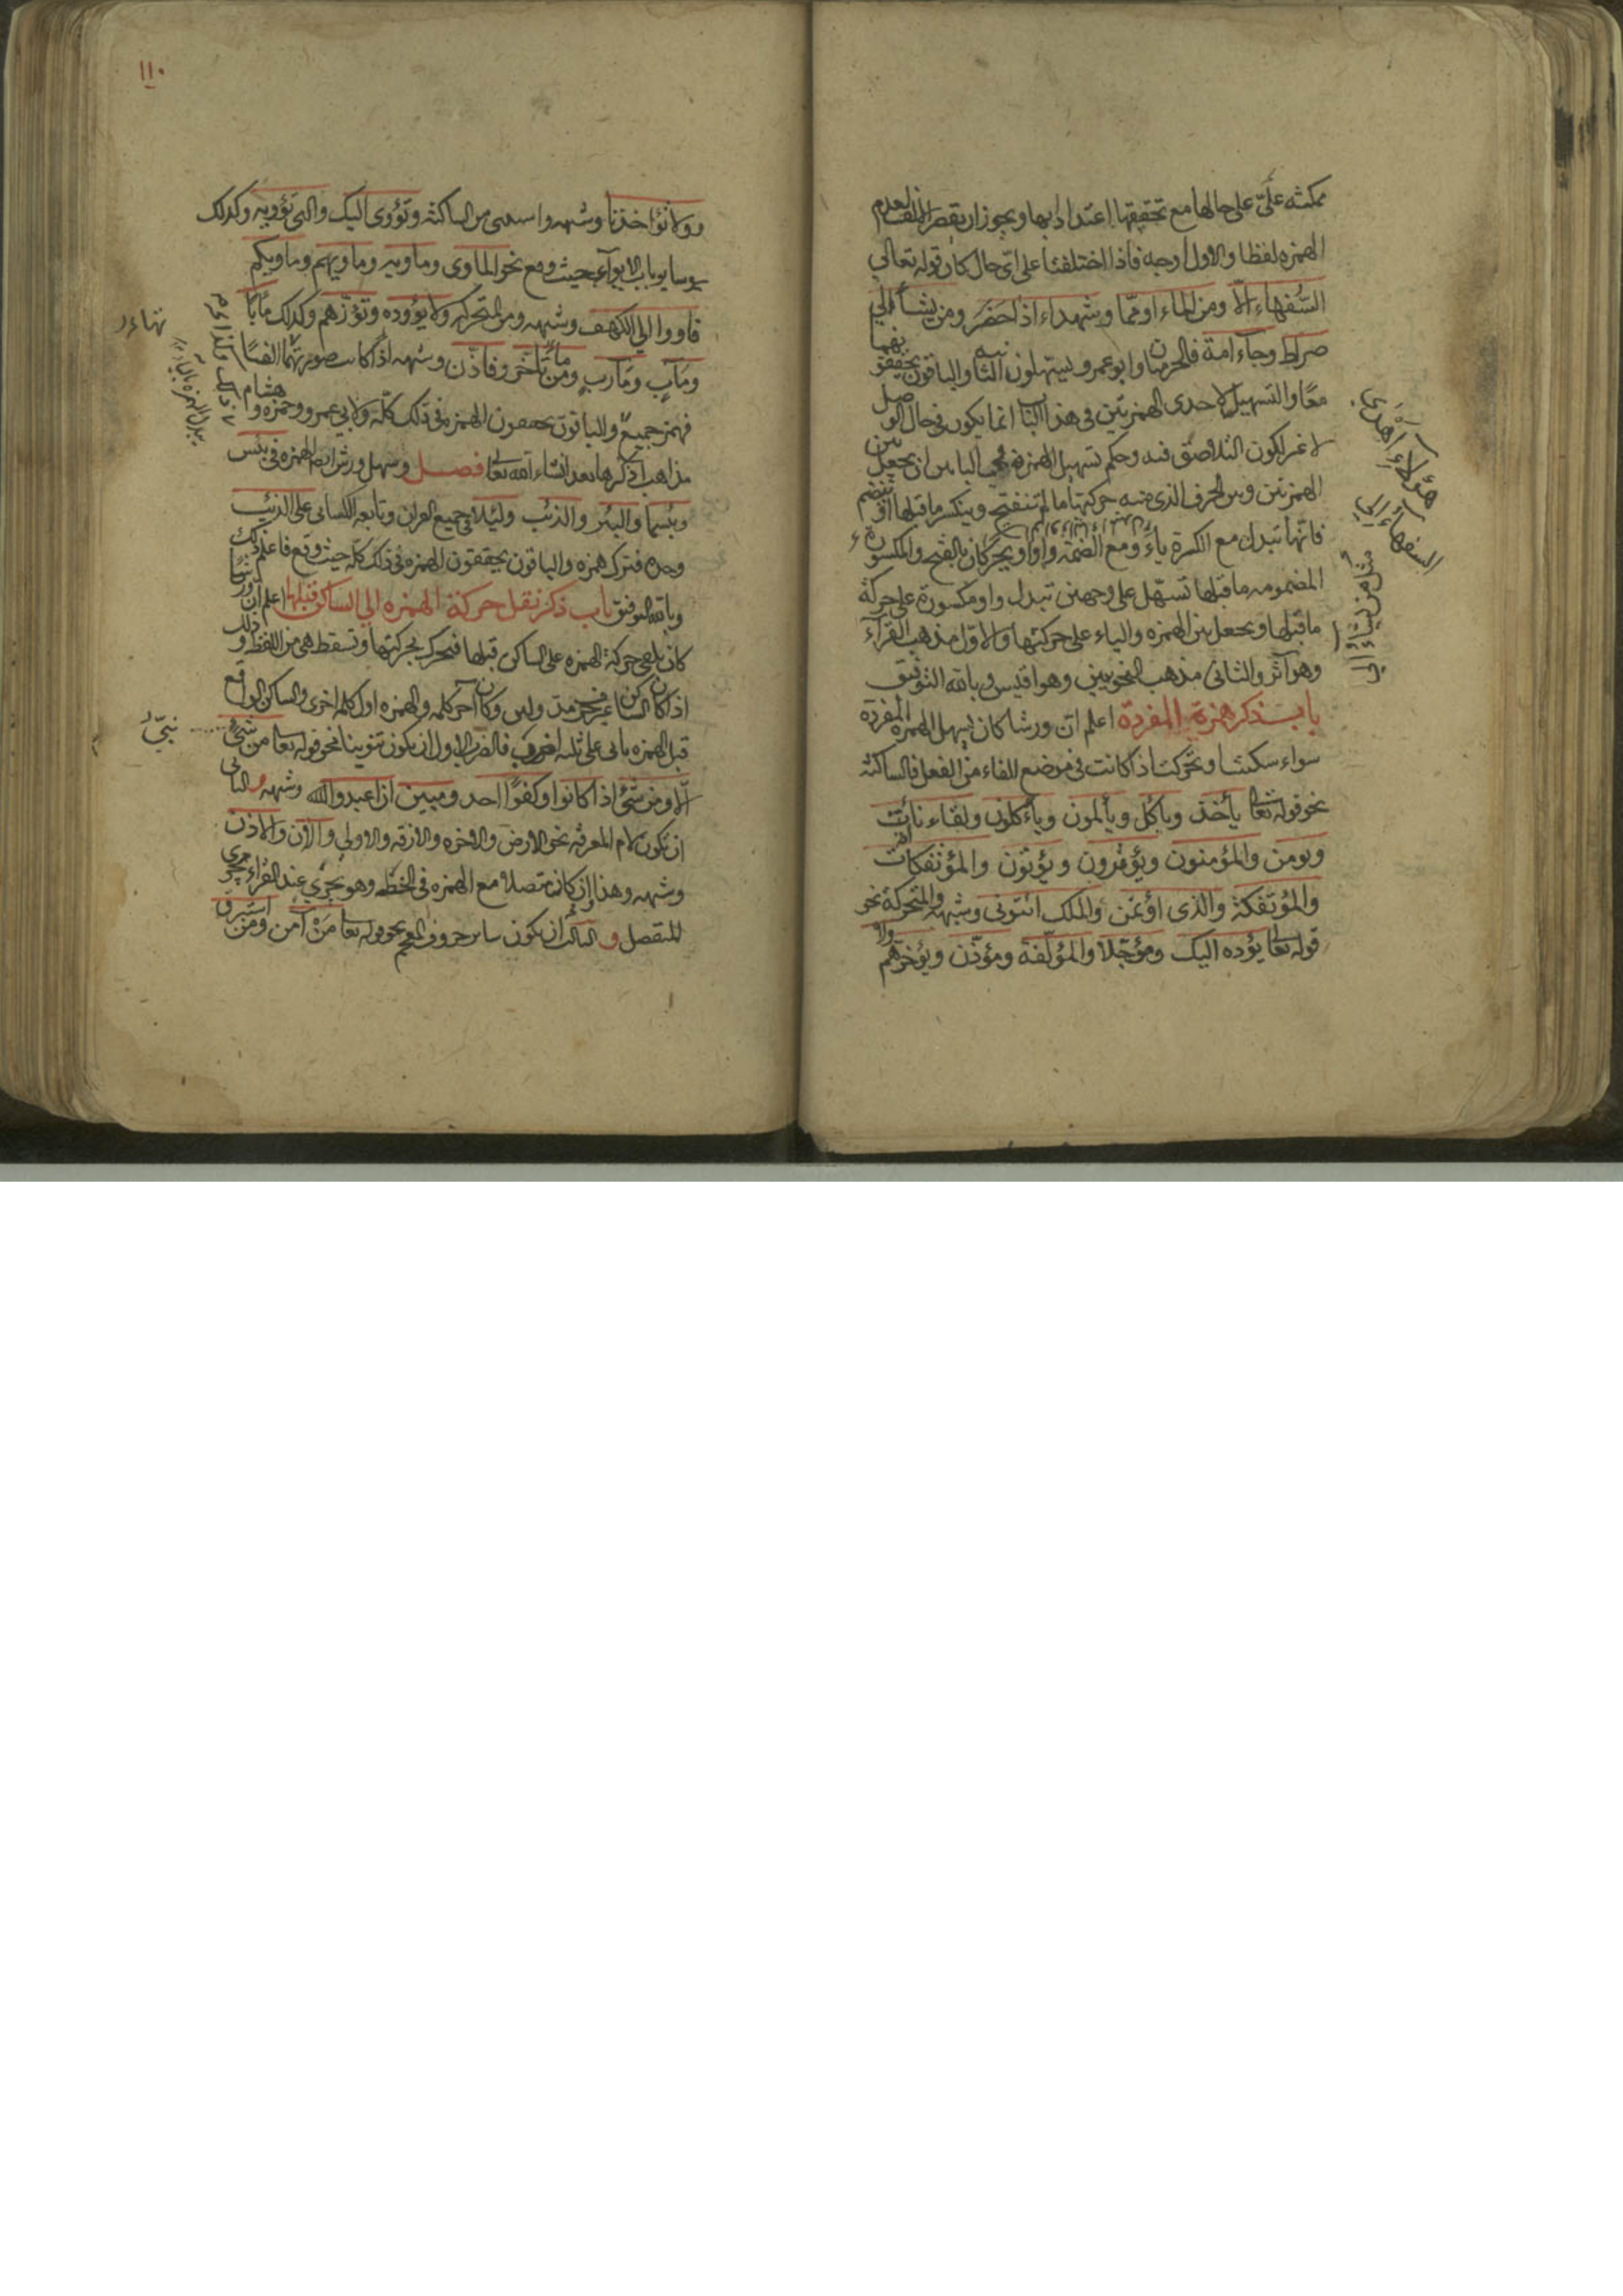 ممكنه على حالها مع تحقيقها اعتدادا بها ويجوز ان يقصر الالف لعدم
الهمزه لفظا والاول اوجه فاذا اختلفتا على اى حال كان قوله تعالي
السُّفهاء الاّ ومن الماء او ممّا وشهداء اذ حَضَر ومن يشاء الي
صراط وجاء امة فالحرميان وابو عمرو يسهلون الثانيه والباقون يحققونهما
معًا والتسهيل لاحدى الهمزتين فى هذا الباب انما يكون فى حال الوصل
لا غير لكون التلاصق فيه وحكم تسهيل الهمزة فى البابين ان يجعل بين
الهمزتين وبين الحرف الذى منه حركتها ما لم تنفتح وينكسر ما قبلها او ينضم
فانّها تبدل مع الكسرة ياءً ومع الضمّة واوا ويحرّكان بالفتح والمكسورة
المضمومه ما قبلها تسهّل على وجهين تبدل واو مكسورة على حركة
ما قبلها وتجعل بين الهمزه والياء على حركتها والاوّل مذهب القرّاء
وهو آثر والثانى مذهب النحويين وهو اقيس وبالله التوفيق
باب ذكر همزة المفردة اعلم انّ ورشا كان يسهل الهمزه المفردة
سواء سكنت او تحرّكت اذا كانت فى موضع الفاء من الفعل فالساكنة
نحو قوله تعالى يأخذ وياكل ويألمون ويأكلون ولقاءنا ائت
ويومن والمؤمنون ويؤفكون ويؤتون والمؤتفكات
والمُؤتفكة والذى اؤتمن والملك ائتونى وشبهه والمتحركة نحو
قوله تعالى يؤده اليك ومؤجّلا والمؤلّفة ومؤذّن ويؤخرهم
ولا
هؤلاء أهدى
السفهاء الي
مثال من يشاء الى
١١٠
ولا تؤاخذنا وشبهه واستثنى من الساكنة وتؤوى اليك والتى تؤويه وكذلك
ساير باب الايواء حيث وقع نحو الماوى وماويه وماويهم وماويكم
فاووا الي الكهف وشبهه ومن المتحركه ولا يؤوده وتؤزّهم وكذلك مآبًا
ومآب ومآرب وما تأخر ومن تأخر وفاذّن وشبهه اذا كانت صورتها الفا
فهمز جميع والباقون يحققون الهمزه فى ذلك كلّه ولابى عمرو وحمزه وهشام
مذاهب اذكرها بعد ان شاء الله تعالى فصل وسهل ورش ايضا الهمزه فى بئس
وبئسما والبئر والذئب ولئلا فى جميع القران وتابعه الكسائى على الذئب
وحده فترك همزه والباقون يحققون الهمزه فى ذلك كلّه حيث وقع فاعلم ذلك
وبالله التوفيق باب ذكر نقل حركة الهمزه الى الساكن قبلها اعلم ان ورشا
كان يلقى حركة الهمزه على الساكن قبلها فتحرك بحركتها وتسقط هى من اللفظ وذلك
اذا كان الساكن غير حرف مد ولين وكان آخر كلمه والهمزه اول كلمه اخرى والساكن الواقع
قبل الهمزه ياتى على ثلثه اضرب فالضرب الاول ان يكون تنوينا نحو قوله تعالى من شئ
الّا ومن شئ اذ كانوا وكفوًا احد ومبين ان اعبدوا الله وشبهه والثانى
ان يكون لام المعرفه نحو الارض والاخره والازفه والاولى والآن والاذن
وشبهه وهذا وان كان متصلا مع الهمزه فى الخط وهو يجرى عند القراء مجرى
المنفصل والثالث ان يكون ساير حروف المعجم نحو قوله تعالى مَنْ آمن ومن استبرق
نبّئ